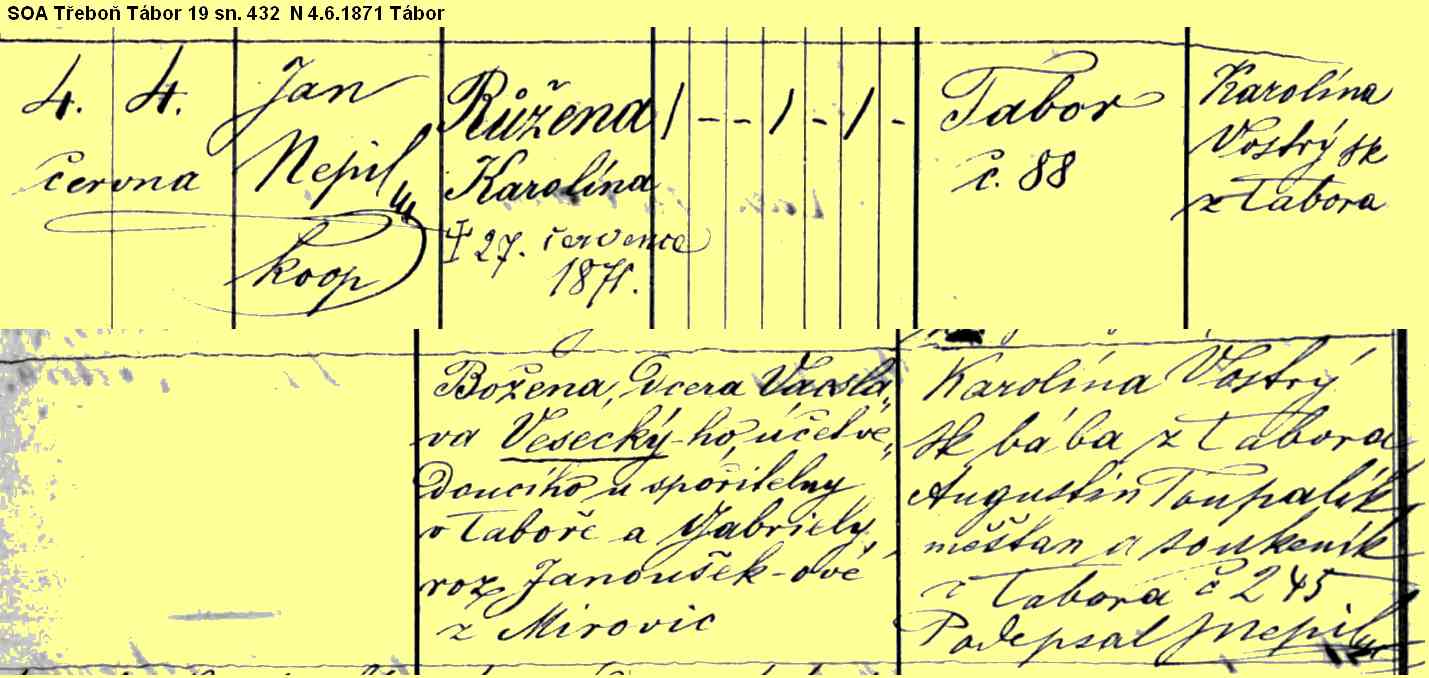 SOA Třeboň Tábor 19 sn. 432 N 4.6.1871 Tábor
4. 4.
června
Jan
Nepil
koop
Růžena
Karolína
27. července
1871.
/ - - / - / -
Tábor
č. 88
Karolína
Vostrý sk
z Tábora
Božena, dcera Vácsla„
va Vesecký-ho, účetvé„
doucího u spořitelny
v Táboře a Gabriely,
roz Janoušek-ové
z Mirovic
Karolína Vostrý
sk bába z Tábora
Augustin Toupalík
měštan a soukeník
z Tábora č 245
Podepsal JNepil